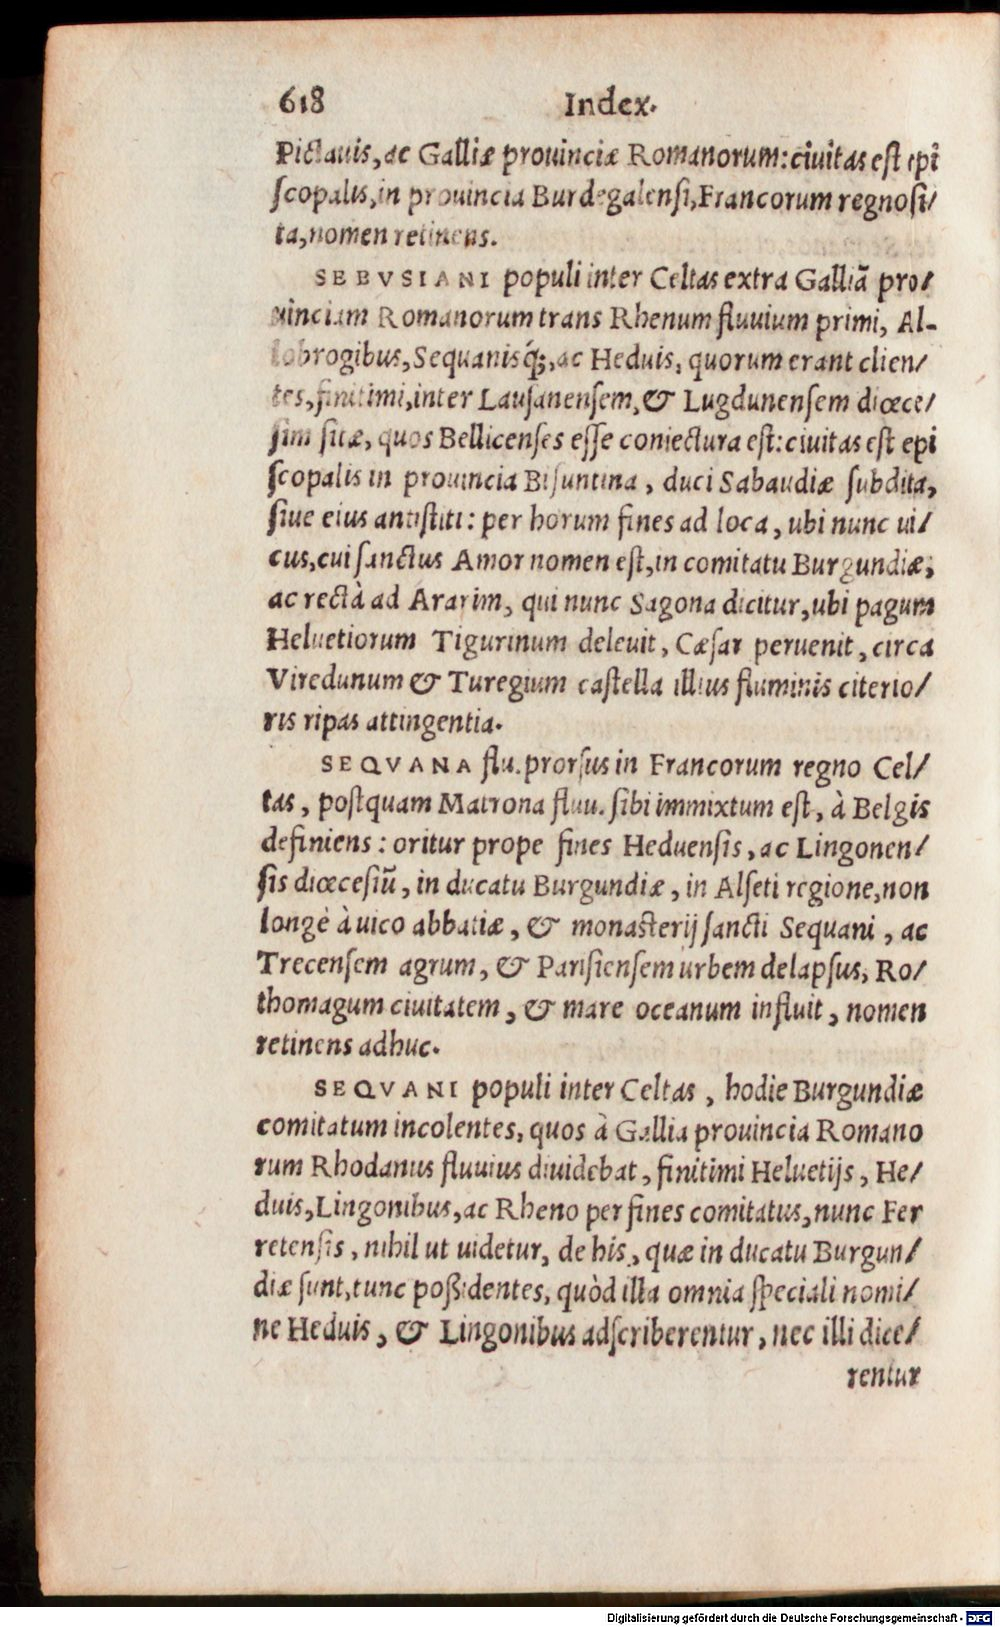 618 Index.
Pictauis, ac Galliæ prouinciæ Romanorum: ciuitas est epi
scopalis, in prouincia Burdegalensi, Francorum regno si/
ta, nomen retinens.
SEBVSIANI populi inter Celtas extra Galliã pro/
uinciam Romanorum trans Rhenum fluuium primi, Al-
lobrogibus, Sequanisq́;, ac Heduis, quorum erant clien/
tes, finitimi, inter Lausanensem, & Lugdunensem diœce/
sim sitæ, quos Bellicenses esse coniectura est: ciuitas est epi
scopalis in prouincia Bisuntina, duci Sabaudiæ subdita,
siue eius antistiti: per horum fines ad loca, ubi nunc ui/
cus, cui sanctus Amor nomen est, in comitatu Burgundiæ,
ac rectà ad Ararim, qui nunc Sagona dicitur, ubi pagum
Heluetiorum Tigurinum deleuit, Cæsar peruenit, circa
Viredunum & Turegium castella illius fluminis citerio/
ris ripas attingentia.
SEQVANA flu. prorsus in Francorum regno Cel/
tas, postquam Matrona fluu. sibi immixtum est, à Belgis
definiens: oritur prope fines Heduensis, ac Lingonen/
sis diœcesiũ, in ducatu Burgundiæ, in Alseti regione, non
longè à uico abbatiæ, & monasterij sancti Sequani, ac
Trecensem agrum, & Parisiensem urbem delapsus, Ro/
thomagum ciuitatem, & mare oceanum influit, nomen
retinens adhuc.
SEQVANI populi inter Celtas, hodie Burgundiæ
comitatum incolentes, quos à Gallia prouincia Romano
rum Rhodanus fluuius diuidebat, finitimi Heluetijs, He/
duis, Lingonibus, ac Rheno per fines comitatus, nunc Fer
retensis, nihil ut uidetur, de his, quæ in ducatu Burgun/
diæ sunt, tunc poßidentes, quòd illa omnia speciali nomi/
ne Heduis, & Lingonibus adscriberentur, nec illi dice/
rentur
Digitalisierung gefördert durch die Deutsche Forschungsgemeinschaft - DFG